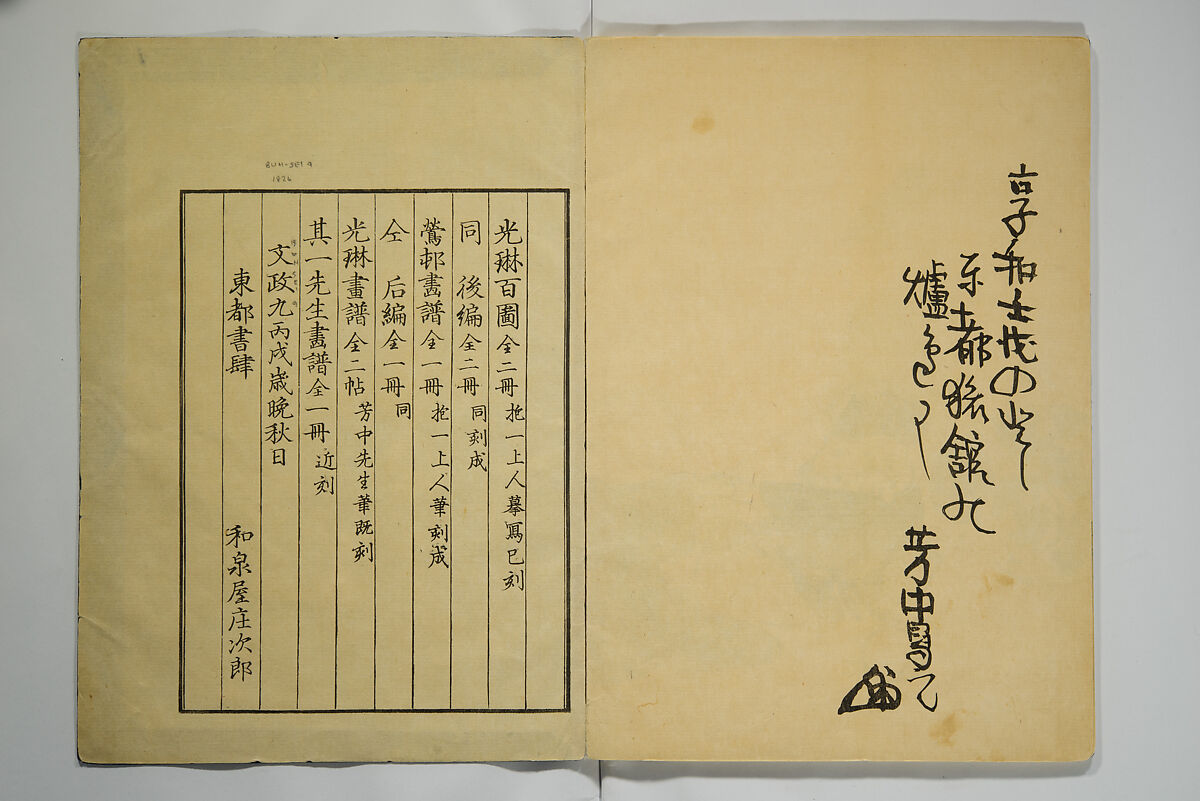 享和壬戌のとし
東都旅舘の
芳中写之
BUN-SEI 9
1826
光琳百圖全二冊 抱一上人摹寫已刻
同 後編全二冊 同刻成
鶯邨畫譜全一冊 抱一上人筆刻成
仝 后編全一冊 同
光琳畫譜全二帖 芳中先生筆既刻
其一先生畫譜全一冊 近刻
文政九丙戌歳晩秋日
東都書肆 和泉屋庄次郎